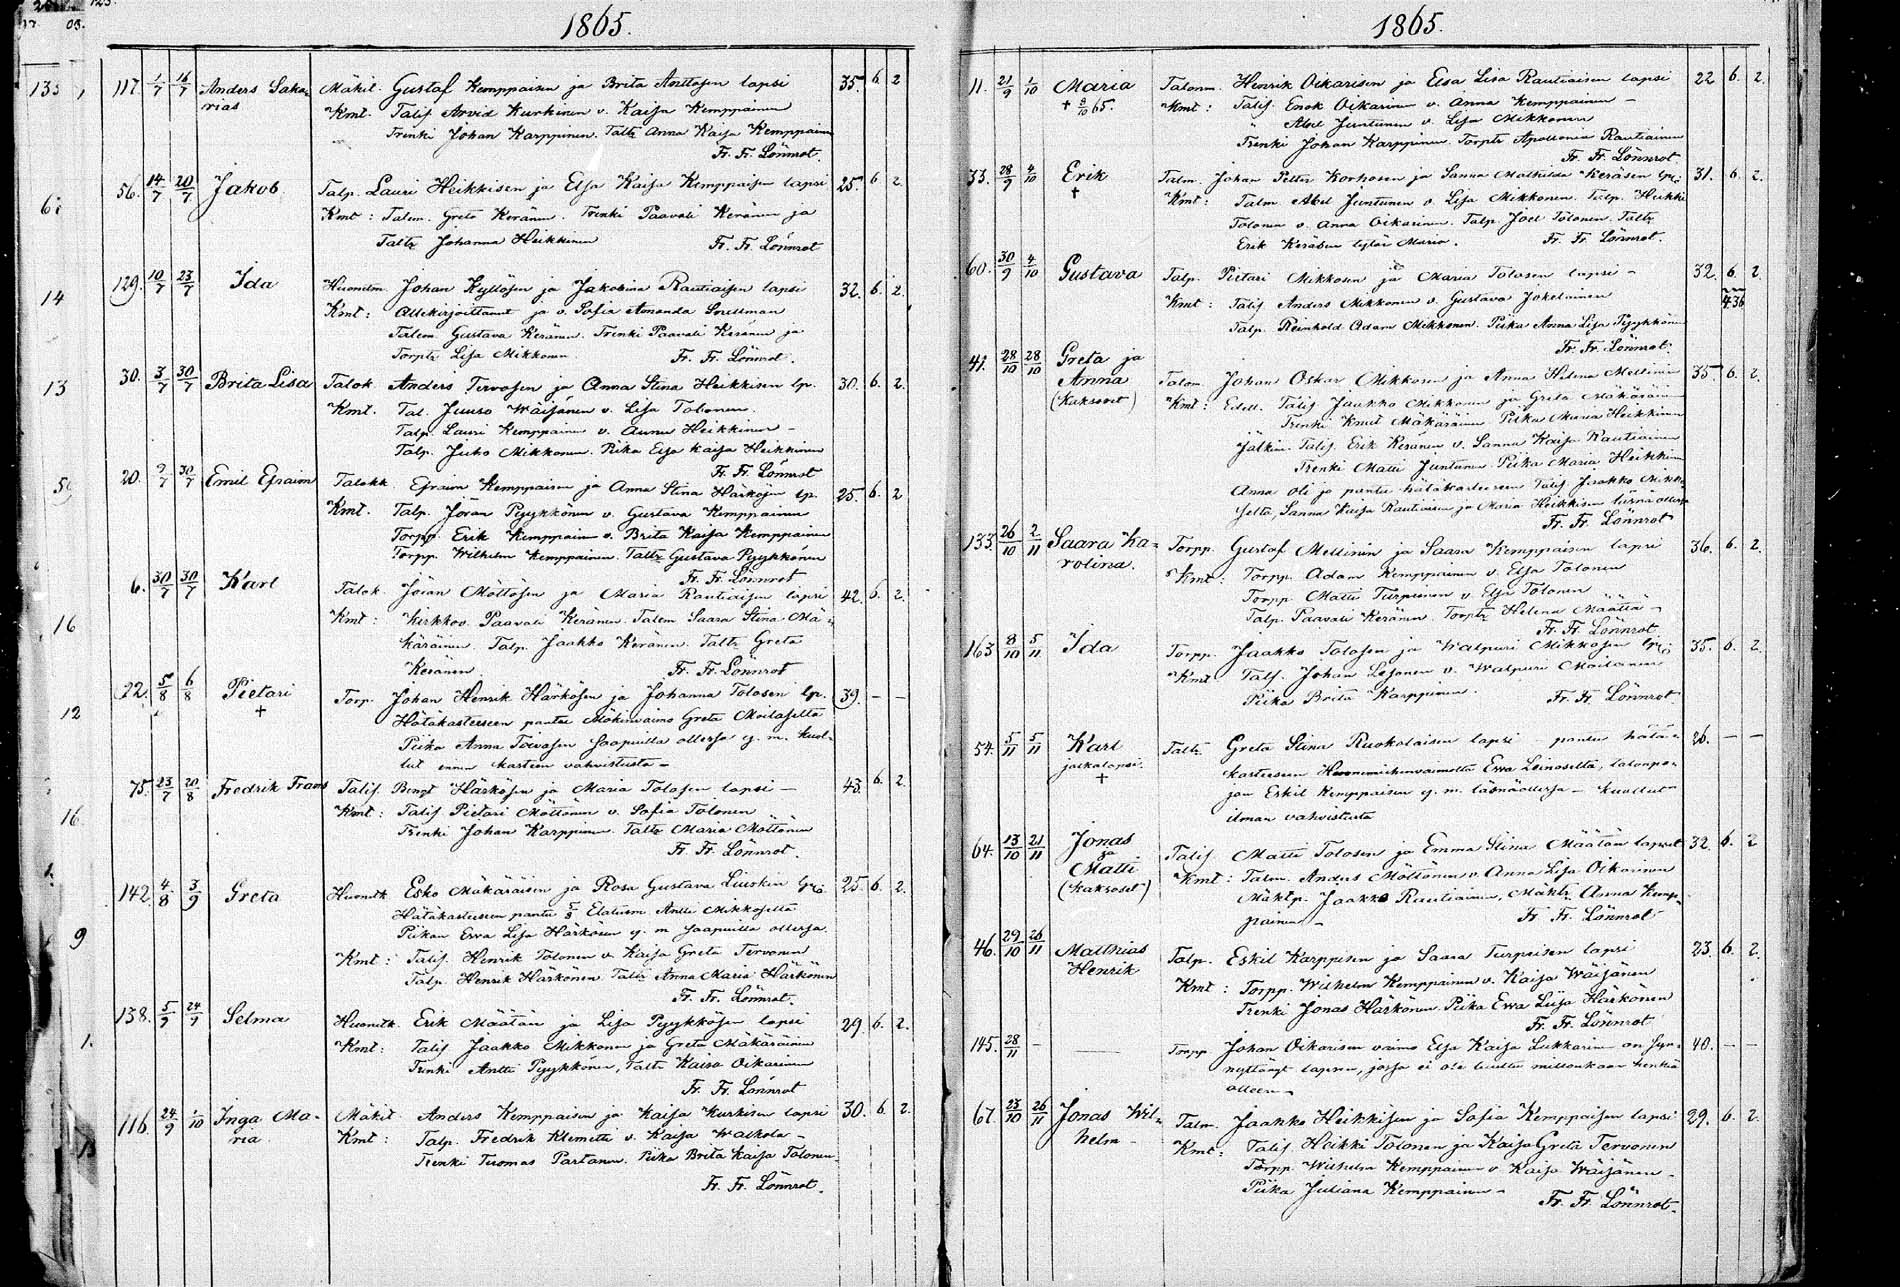 1865.
117. 1/7 16/7 Anders Saka= Mäkit. Gustaf Kemppaisen ja Brita Anttosen lapsi 35. 6. 2
rias Kmt. Talis Arvid Kurkinen v. Kaisa Kemppainen
Trenki Johan Karppinen. Taltr Anna Kaisa Kemppainen
Fr. Fr. Lönnrot.
56. 14/7 20/7 Jakob Talp. Lauri Heikkisen ja Elsa Kaisa Kemppaisen lapsi 25. 6 2.
Kmt: Talem. Greta Keränen. Trenki Paavali Keränen ja
Taltr Johanna Heikkinen Fr. Fr. Lönnrot
129. 10/7 23/7 Ida Huonilm. Johan Kyllösen ja Jakobina Rautiaisen lapsi 32. 6. 2.
Kmt: Allekirjoittanut ja v. Sofia Amanda Snellman
Talem Gustava Keränen. Trenki Paavali Keränen ja
Torptr Lisa Mikkonen. Fr. Fr. Lönnrot.
30. 3/7 30/7 Brita Lisa Talok. Anders Tervosen ja Anna Stina Heikkisen lp. 30. 6. 2.
Kmt. Tal. Juuso Wäisänen v. Lisa Tolonen.
Talp. Lauri Kemppainen v. Anna Heikkinen –
Talp. Juho Mikkonen. Piika Elsa Kaisa Heikkinen
Fr. Fr. Lönnrot
20. 9/7 30/7 Emil Efraim Talokk. Efraim Kemppaisen ja Anna Stina Härkösen lp. 25. 6. 2
Kmt. Talp. Jöran Pyykkönen v. Gustava Kemppainen
Torpp. Erik Kemppainen v. Brita Kaisa Kemppainen
Torpp. Wilhelm Kemppainen. Taltr Gustava Pyykkönen
Fr. Fr. Lönnrot
6. 30/7 30/7 Karl Talok. Jöran Möttösen ja Maria Rautiaisen lapsi 42. 6. 2.
Kmt: Kirkkov. Paavali Keränen. Talem Saara Stina Mä=
käräinen. Talp. Jaakko Keränen. Taltr Greta
Keränen Fr. Fr. Lönnrot
22. 5/8 6/8 Pietari Torp. Johan Henrik Härkösen ja Johanna Tolosen lp. 39. – –
+ Hätäkasteeseen pantu Mökinvaimo Greta Moilaselta
Piika Anna Toivosen saapuilla ollessa y. m. kuol=
lut ennen kasteen vahvistusta –
75. 23/7 20/8 Fredrik Frans Talis. Bengt Härkösen ja Maria Tolosen lapsi – 43. 6. 2.
Kmt: Talis Pietari Möttönen v. Sofia Tolonen
Trenki Johan Karppinen. Taltr Maria Möttönen
Fr. Fr. Lönnrot.
142. 4/8 3/9 Greta Huonilk Esko Mäkäräisen ja Rosa Gustava Liuskin 25. 6. 2.
Hätäkasteeseen pantu Elatusm. Antti Mikkoselta
Piikan Ewa Lisa Härkösen y. m saapuilla ollessa.
Kmt: Talis. Henrik Tolonen v. Kaisa Greta Tervonen
Talp. Henrik Härkönen. Taltr Anna Maria Härkönen
Fr. Fr. Lönnrot.
138. 5/9 24/9 Selma Huonilk. Erik Määtän ja Lisa Pyykkösen lapsi 29. 6. 2.
Kmt: Talis Jaakko Mikkonen ja Greta Mäkäräinen
Trenki Antti Pyykkönen, Taltr Kaisa Oikarinen
Fr. Fr. Lönnrot
116. 24/9 1/10 Inga Ma= Mäkit. Anders Kemppaisen ja Kaisa Kurkisen lapsi 30. 6. 2.
ria. Kmt: Talp. Fredrik Klemetti v. Kaisa Walkola –
Trenki Tuomas Partanen. Piika Brita Kaisa Tolonen.
Fr. Fr. Lönnrot.
1865.
11. 21/9 1/10 Maria Talonm. Henrik Oikarisen ja Elsa Lisa Rautiaisen lapsi 22 6. 2.
+ 8/10 65. Kmt: Talis. Enok Oikarinen v. Anna Kemppainen –
Abel Juntunen v. Lisa Mikkonen
Trenki Johan Karppinen. Torptr Apollonia Rautiainen
Fr. Fr. Lönnrot
33. 28/9 4/10 Erik Talm. Johan Petter Korhosen ja Sanna Mathilda Keräsen 31. 6 2.
+ Kmt: Talm Abel Juntunen v. Lisa Mikkonen. Talp. Heikki
Tolonen v. Anna Oikarinen. Talp. Joel Tolonen. Taltr
Erik Keräsen tytär Maria. Fr. Fr. Lönnrot.
60. 30/9 4/10 Gustava Talp. Pietari Mikkosen ja Maria Tolosen lapsi – 32. 6 2.
Kmt: Talis Anders Mikkonen v. Gustava Jokelainen 436
Talp. Reinhold Adam Mikkonen. Piika Anna Lisa Pyykkönen
Fr. Fr. Lönnrot.
41. 28/10 28/10 Greta ja
Anna Talon. Johan Oskar Mikkosen ja Anna Helena Mellinin 35 6. 2.
(Kaksoset) Kmt: Edell. Talis Jaakko Mikkonen ja Greta Mäkäräinen
Trenki Knut Mäkäräinen Piika Maria Heikkinen
Jälkim. Talis. Erik Keränen v. Sanna Kaisa Rautiainen
Trenki Matti Juntunen. Piika Maria Heikkinen
Anna oli jo pantu hätäkasteeseen Talis Jaakko Mikko=
selta, Sanna Kaisa Rautiaisen ja Maria Heikkisen läsnä ollessa
Fr. Fr. Lönnrot
133. 26/10 2/11 Saara Ka= Torpp. Gustaf Mellinin ja Saara Kemppaisen lapsi 36. 6. 2.
rolina. Kmt: Torpp. Adam Kemppainen v. Elsa Tolonen
Torpp Matti Turpeinen v. Elsa Tolonen
Talp. Paavali Keränen. Torptr Helena Määttä –
Fr. Fr. Lönnrot
163 8/10 5/11 Ida Torpp. Jaakko Tolosen ja Walpuri Mikkosen 35. 6. 2.
Kmt Talp. Johan Leskonen v. Walpuri Moilanen
Piika Brita Karppinen. Fr. Fr. Lönnrot
54. 5/11 5/11 Karl Taltr. Greta Stina Ruokolaisen lapsi – pantu hätä= 26. – –
jalkalapsi. kasteeseen Huonemiehenvaimolta Ewa Leinoselta, talonpo=
+ jan Eskil Kemppaisen y. m. läsnäollessa – kuollut
ilman vahvistusta
64. 13/10 21/11 Jonas
ja Talis Matti Tolosen ja Emma Stina Määtän lapset 32. 6. 2
Matti Kmt: Talm. Anders Möttönen v. Anna Lisa Oikarinen
(Kaksoset) Mäkitp. Jaakko Rautiainen, Mäkitr Anna Kemp=
painen – Fr. Fr. Lönnrot
46. 29/10 26/11 Matthias Talp. Eskil Karppisen ja Saara Turpeisen lapsi 23. 6. 2.
Henrik Kmt: Torpp. Wilhelm Kemppainen v. Kaisa Wäisänen
Trenki Jonas Härkönen Piika Ewa Liisa Härkönen
Fr. Fr. Lönnrot
145. 28/11 – — Torpp Johan Oikarisen vaimo Elsa Kaisa Lukkarinen on syn= 40. – –
nyttänyt lapsen, jossa ei ole luultu millonkaan henkeä
olleen –
67. 23/10 26/11 Jonas Wil= Talm. Jaakko Heikkisen ja Sofia Kemppaisen lapsi 29. 6. 2.
helm – Kmt: Talis Heikki Tolonen ja Kaisa Greta Tervonen
Torpp. Wilhelm Kemppainen v. Kaisa Wäisänen –
Piika Juliana Kemppainen –
Fr. Fr. Lönnrot.